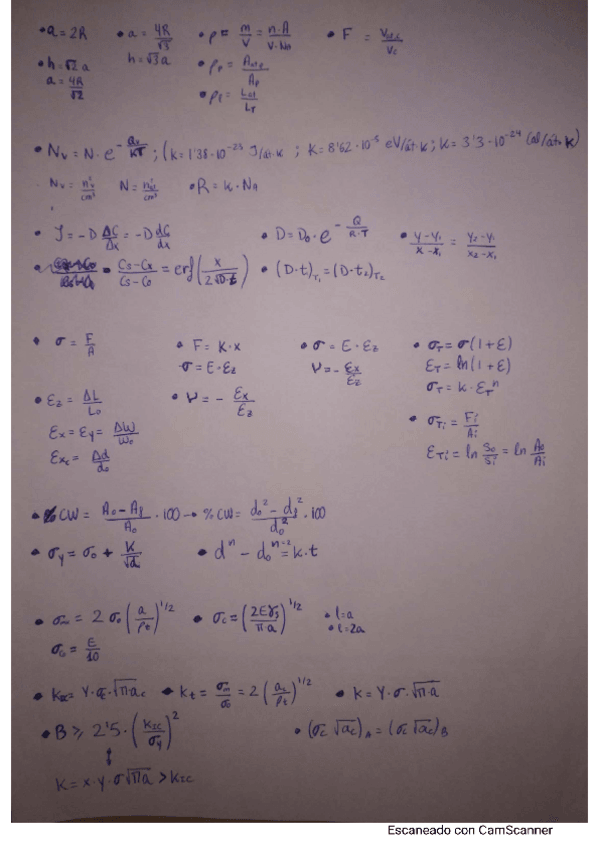 • a=2R • a = 4R/√3 • ρ = m/V = n·A/V·Na • F = /Vc
• h=√2 a h=√3 a • ρp = /Ap
a = 4R/√2 • ρl = /LT
• Nv = N·e^(-Qv/KT) ; (k=1'38·10^-23 J/át·k ; K=8'62·10^-5 eV/át·k; K=3'3·10^-24 Cal/át·k)
Nv = /cm³ N = /cm³ • R = k·Na
• J = -D ΔC/Δx = -D dC/dx • D=D₀·e^(-Q/R·T) • y-y₁/x-x₁ = y₂-y₁/x₂-x₁
• Cs-Cx/Cs-C₀ = erf(x/2√D·t) • (D·t)T₁=(D·t₂)T₂
• σ = F/A • F = K·x • σ = E·εz • σT=σ(1+ε)
σ=E·εz ν=-εx/εz εT=ln(1+ε)
σT = k·εT^n
• εz = ΔL/L₀ • ν = -εx/εz
εx=εy= ΔW/W₀ • σTi = Fi/Ai
εx = Δd/d₀ εTi = ln S₀/Si = ln A₀/Ai
• %CW = A₀-Af/A₀ ·100 → %CW= d₀²-df²/d₀² ·100
• σy = σ₀ + K/√d • d^n - d₀^n = k·t
• σm = 2σ₀(a/ρ₀)^1/2 • σc=(2Eγs/πa)^1/2 • l=a
• l=2a
σ₀ = E/10
• KIC= Y·σc·√π·ac • Kt = σm/σ₀ = 2(a/ρt)^1/2 • K=Y·σ·√π·a
• B ⩾ 2'5·(KIC/σy)² • (σc √ac)A=(σc √ac)B
↕
K = x·y·σ√πa > KIC
Escaneado con CamScanner